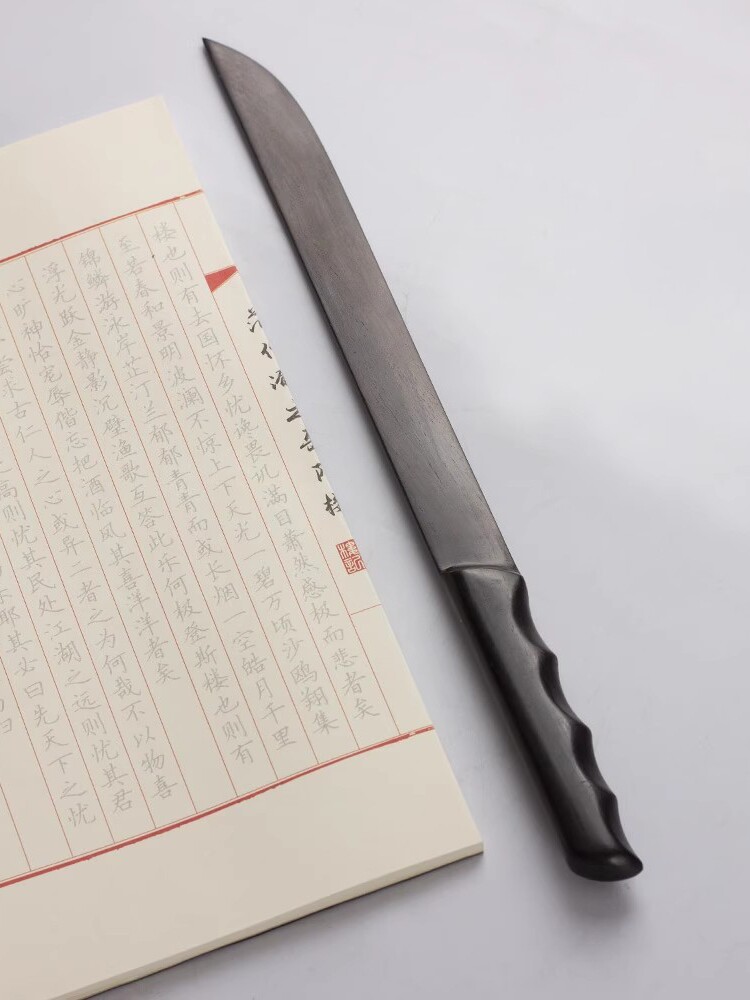 楼也则有去国怀乡忧谗畏讥满目萧然感极而悲者矣
至若春和景明波澜不惊上下天光一碧万顷沙鸥翔集
锦鳞游泳岸芷汀兰郁郁青青而或长烟一空皓月千里
浮光跃金静影沉璧渔歌互答此乐何极登斯楼也则有
心旷神怡宠辱偕忘把酒临风其喜洋洋者矣
求古仁人之心或异二者之为何哉不以物喜
高则忧其民处江湖之远则忧其君
耶其必曰先天下之忧